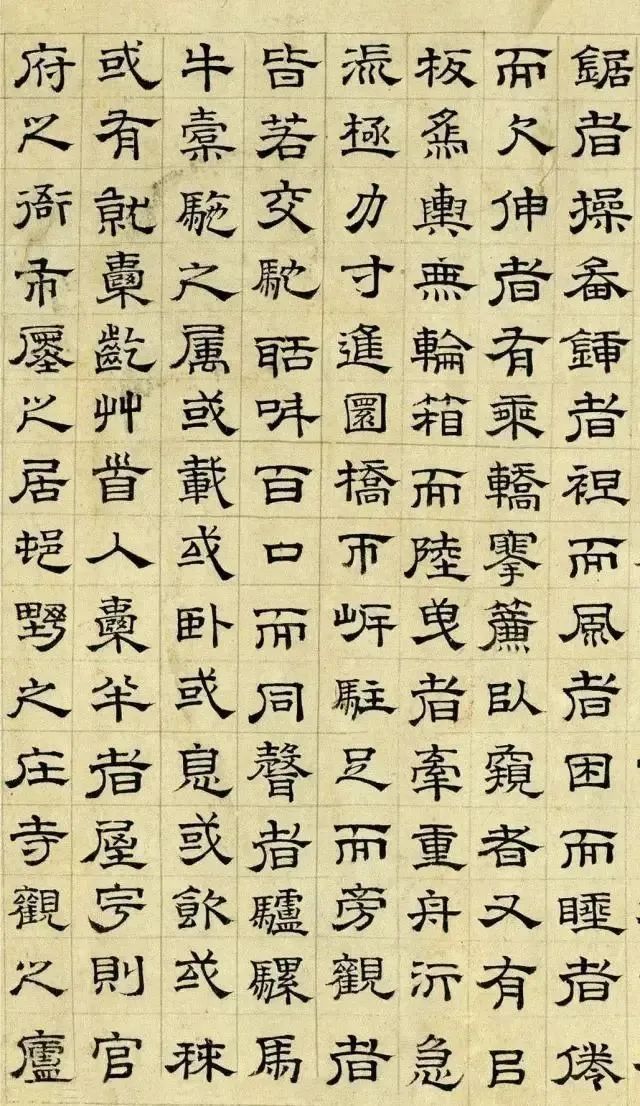 鋸者操畚鍤者袒而風者困而睡者倦
而欠伸者有乘轎搴簾以窺者又有㠯
板爲輿無輪箱而陸曳者牽重舟泝急
流極力寸進圜橋帀岸駐足而旁觀者
皆若交馳聒呼百口而同聲者驢騾馬
牛橐駞之属或載或卧或息或飲或秣
或有就囊齕艸首入囊半者屋宇則官
府之衙市廛之居邨野之庄寺觀之廬